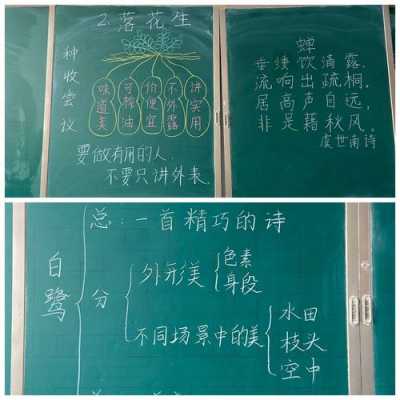 2.落花生
种收尝议
味道美
可榨油
价便宜
不外露
讲实用
要做有用的人,
不要只讲外表.
蝉
垂緌饮清露,
流响出疏桐.
居高声自远,
非是藉秋风.
虞世南诗
白鹭
总:一首精巧的诗
分
外形美
色素
身段
不同场景中的美
水田
枝头
空中